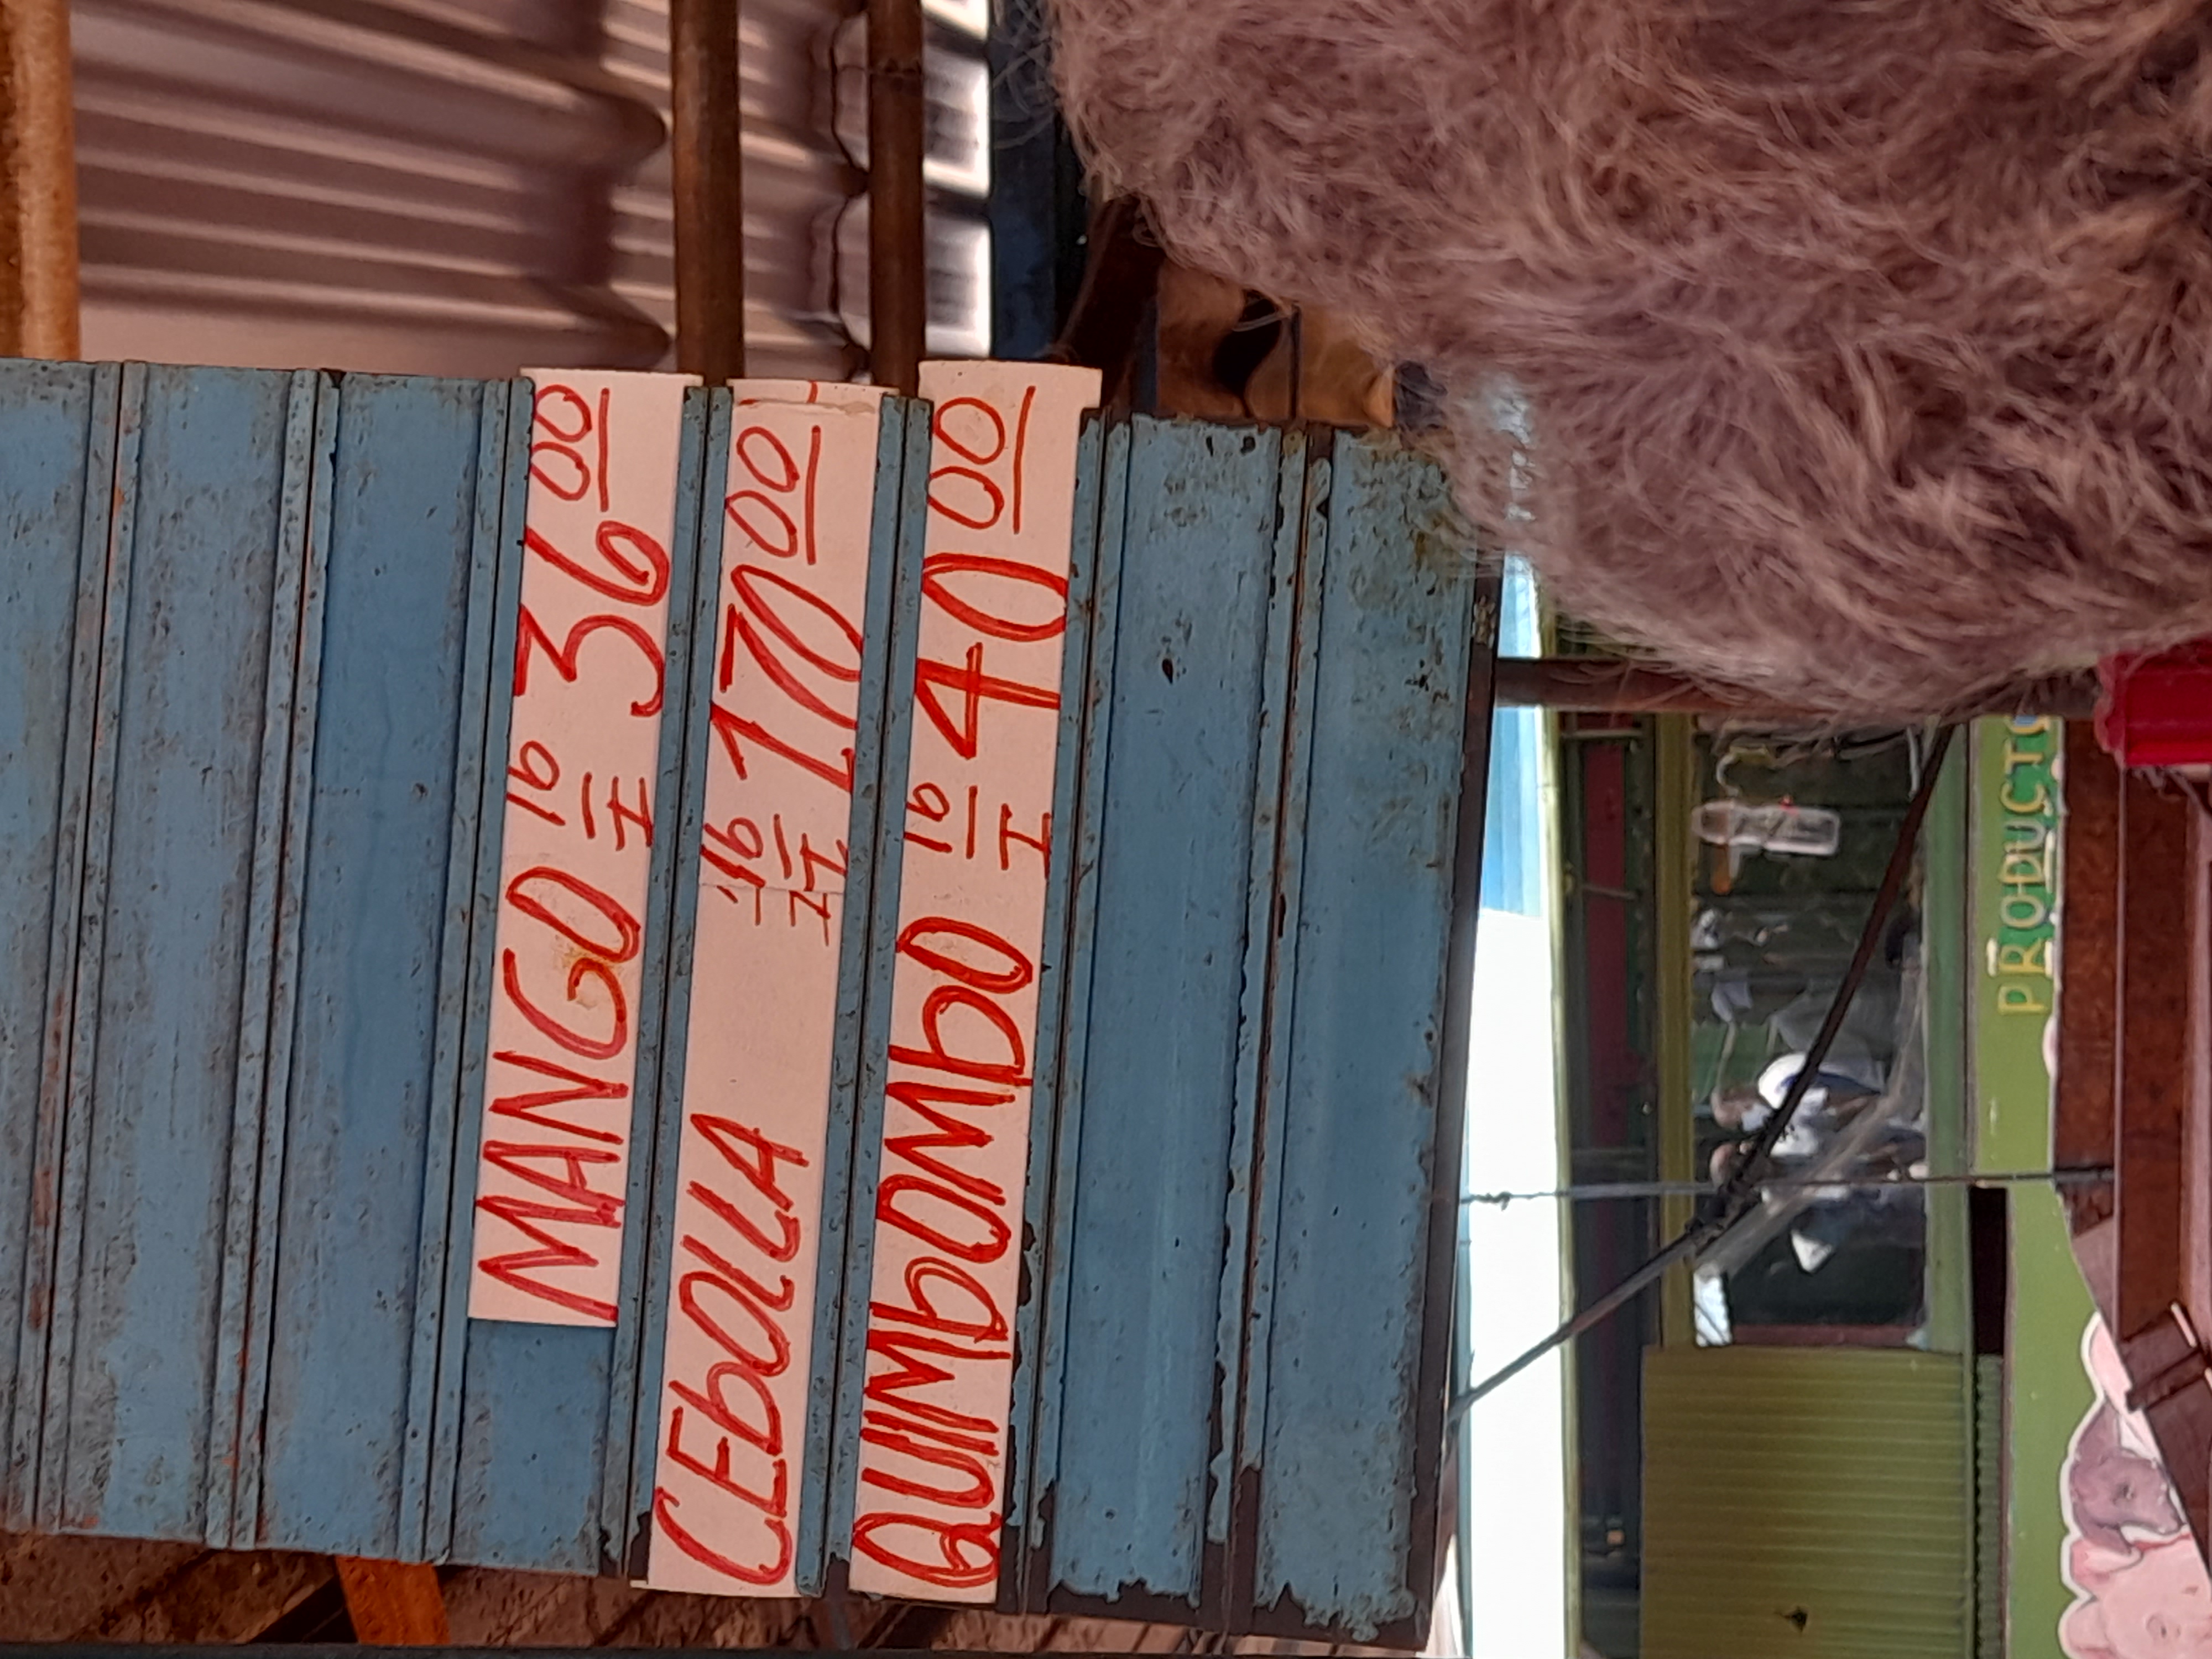 MANGO 1b/I 36.00
CEbOLLA 1b/I 170.00
QUIMbOMbO 1b/I 40.00
PRODUCTO